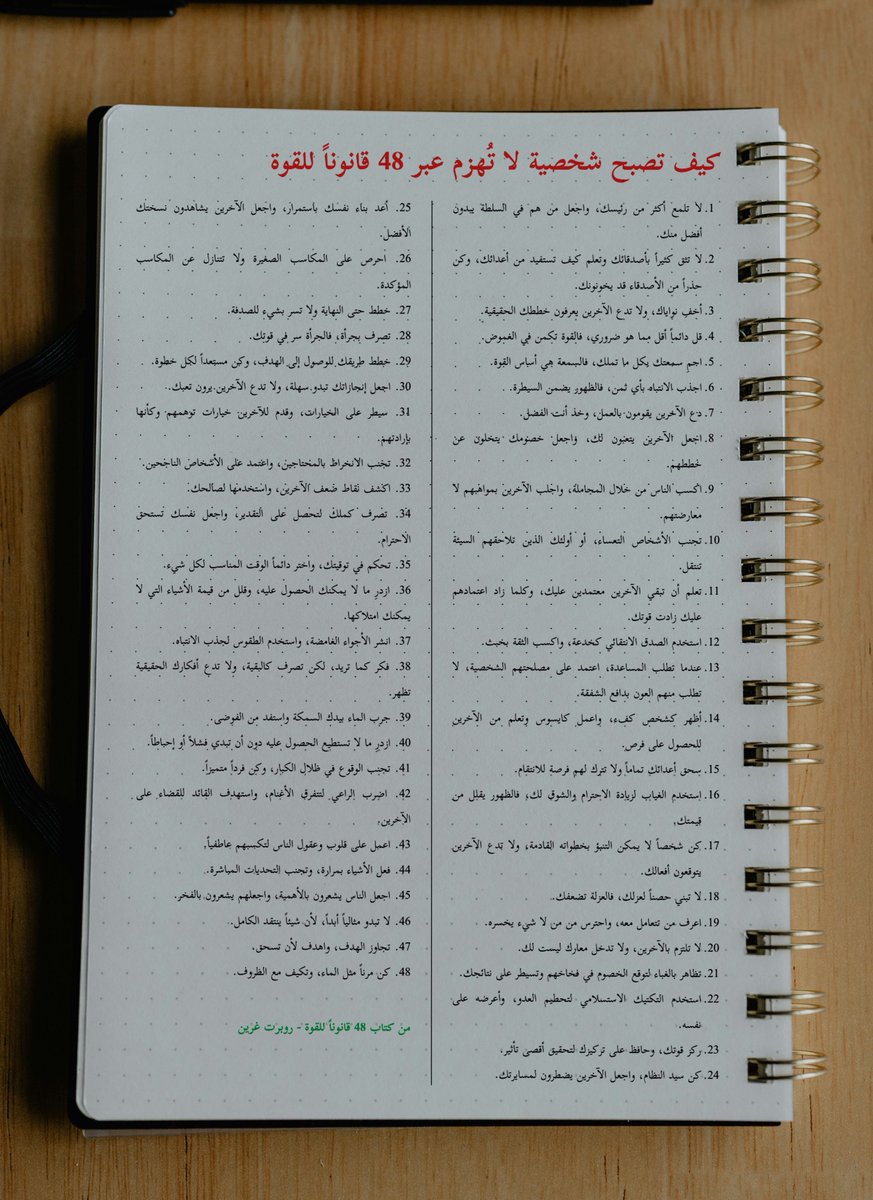 كيف تصبح شخصية لا تُهزم عبر 48 قانوناً للقوة
1. لا تلمع أكثر من رئيسك، واجعل من هم في السلطة يبدون
أفضل منك.
2. لا تثق كثيراً بأصدقائك وتعلم كيف تستفيد من أعدائك، وكن
حذراً من الأصدقاء قد يخونونك.
3. أخفِ نواياك، ولا تدع الآخرين يعرفون خططك الحقيقية.
4. قل دائماً أقل مما هو ضروري، فالقوة تكمن في الغموض.
5. احمِ سمعتك بكل ما تملك، فالسمعة هي أساس القوة.
6. اجذب الانتباه بأي ثمن، فالظهور يضمن السيطرة.
7. دع الآخرين يقومون بالعمل، وخذ أنت الفضل.
8. اجعل الآخرين يتعبون لك، واجعل خصومك يتخلون عن
خططهم.
9. اكسب الناس من خلال المجاملة، واجلب الآخرين بمواهبهم لا
معارضتهم.
10. تجنب الأشخاص التعساء، أو أولئك الذين تلاحقهم السيئة
تنتقل.
11. تعلم أن تبقي الآخرين معتمدين عليك، وكلما زاد اعتمادهم
عليك زادت قوتك.
12. استخدم الصدق الانتقائي كخدعة، واكسب الثقة بخبث.
13. عندما تطلب المساعدة، اعتمد على مصلحتهم الشخصية، لا
تطلب منهم العون بدافع الشفقة.
14. أظهر كشخص كفء، واعمل كايسوس وتعلم من الآخرين
للحصول على فرص.
15. سحق أعدائك تماماً ولا تترك لهم فرصة للانتقام.
16. استخدم الغياب لزيادة الاحترام والشوق لك، فالظهور يقلل من
قيمتك.
17. كن شخصاً لا يمكن التنبؤ بخطواته القادمة، ولا تدع الآخرين
يتوقعون أفعالك.
18. لا تبني حصناً لعزلك، فالعزلة تضعفك.
19. اعرف من تتعامل معه، واحترس من من لا شيء يخسره.
20. لا تلتزم بالآخرين، ولا تدخل معارك ليست لك.
21. تظاهر بالغباء لتوقع الخصوم في فخاخهم وتسيطر على نتائجك.
22. استخدم التكتيك الاستسلامي لتحطيم العدو، وأعرضه على
نفسه.
23. ركز قوتك، وحافظ على تركيزك لتحقيق أقصى تأثير.
24. كن سيد النظام، واجعل الآخرين يضطرون لمسايرتك.
25. أعد بناء نفسك باستمرار، واجعل الآخرين يشاهدون نسختك
الأفضل.
26. احرص على المكاسب الصغيرة ولا تتنازل عن المكاسب
المؤكدة.
27. خطط حتى النهاية ولا تسر بشيء للصدفة.
28. تصرف بجرأة، فالجرأة سر في قوتك.
29. خطط طريقك للوصول إلى الهدف، وكن مستعداً لكل خطوة.
30. اجعل إنجازاتك تبدو سهلة، ولا تدع الآخرين يرون تعبك.
31. سيطر على الخيارات، وقدم للآخرين خيارات توهمهم وكأنها
بإرادتهم.
32. تجنب الانخراط بالمحتاجين، واعتمد على الأشخاص الناجحين.
33. اكتشف نقاط ضعف الآخرين، واستخدمها لصالحك.
34. تصرف كملك لتحصل على التقدير، واجعل نفسك تستحق
الاحترام.
35. تحكم في توقيتك، واختر دائماً الوقت المناسب لكل شيء.
36. ازدرِ ما لا يمكنك الحصول عليه، وقلل من قيمة الأشياء التي لا
يمكنك امتلاكها.
37. انشر الأجواء الغامضة، واستخدم الطقوس لجذب الانتباه.
38. فكر كما تريد، لكن تصرف كالبقية، ولا تدع أفكارك الحقيقية
تظهر.
39. جرب الماء بيدك السمكة واستفد من الفوضى.
40. ازدرِ ما لا تستطيع الحصول عليه دون أن تبدي فشلاً أو إحباطاً.
41. تجنب الوقوع في ظلال الكبار، وكن فرداً متميزاً.
42. اضرب الراعي لتتفرق الأغنام، واستهدف القائد للقضاء على
الآخرين.
43. اعمل على قلوب وعقول الناس لتكسبهم عاطفياً.
44. فعل الأشياء بمرارة، وتجنب التحديات المباشرة.
45. اجعل الناس يشعرون بالأهمية، واجعلهم يشعرون بالفخر.
46. لا تبدو مثالياً أبداً، لأن شيئاً ينتقد الكامل.
47. تجاوز الهدف، واهدف لأن تسحق.
48. كن مرناً مثل الماء، وتكيف مع الظروف.
من كتاب 48 قانوناً للقوة - روبرت غرين